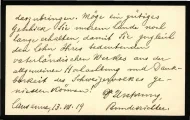 darbringen. Möge ein gütiges
Geschick Sie unserm Lande noch
lange erhalten, damit Sie zugleich
den Lohn Ihres bedeutenden
vaterländischen Werkes aus der
allgemeinen Hochachtung und Dank-
barkeit des Schweizervolkes ge-
niessen können!
Lausanne, 13. VII. 19
Bundesrichter.